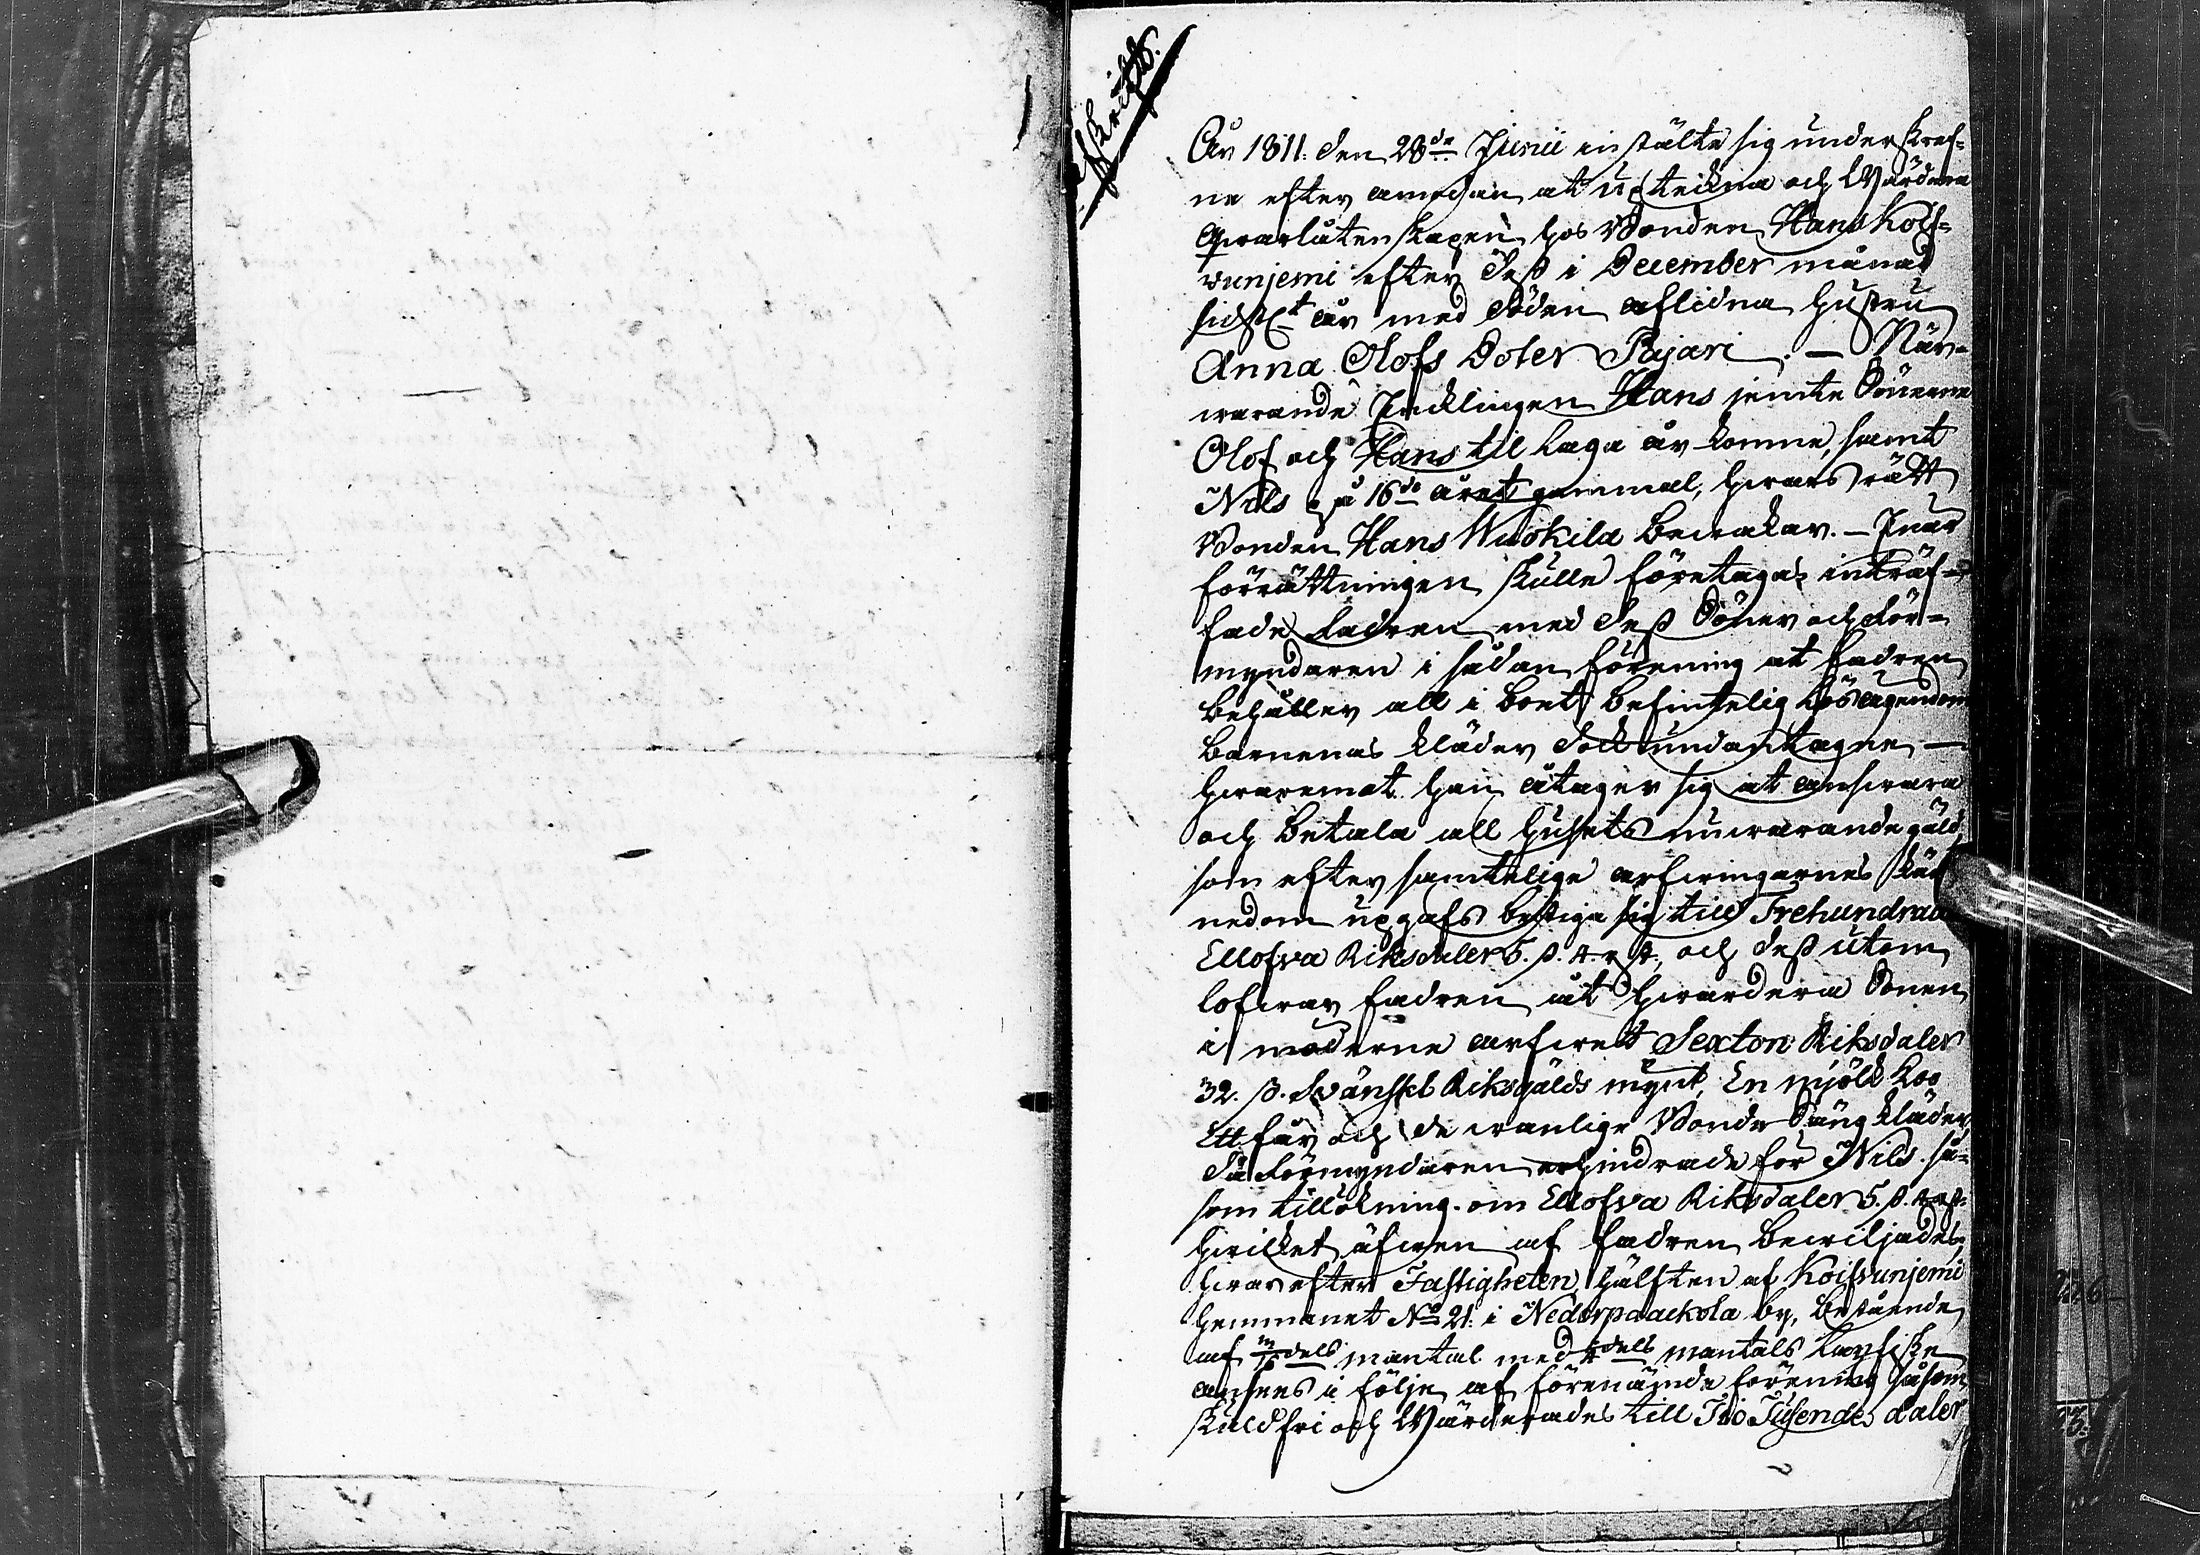 Afskrift.
År 1811. den 28de Junii instälte sig underskref-
ne efter anmodan at upteckna och Wärdera
Qvarlåtenskapen hos Bonden Hans Koif-
vunjemi efter dess i December månad
sidste år med döden aflidna hustru
Anna Olofs Doter Pajari. — När-
warande Encklingen Hans jemte Sönerne
Olof och Hans til laga år komne, samt
Nils på 16de året gammal, hvars rätt
Bonden Hans Wuokila bewakar. — Innan
förrättningen skulle företagas inträf-
fade Fadren med dess Söner och För-
myndaren i sådan förening at fadren
behåller all i boet befintelig lös ägendom
barnenas kläder dock undantagne —
hvaremot han åtager sig at answara
och betala all husets nuvarande gäld,
som efter samtelige arfwingarnes
nedom upgafs bestiga sig till Trehundrade
Ellofva Riksdaler 5. ß. 4 rst, och dess utom
lofwar fadren åt hwardera Sonen
i möderne arfwet Sexton Riksdaler
32. ß. Svänskt Riksgälds mynt, En mjölk Ko
Ett får och de wanlige Bonde Sängkläder,
då Förmyndaren erhindrade för Nils så-
som tillökning om Ellofva Riksdaler 5. ß. 4 rst.
hvilket äfwen af fadren bewiljades,
hvarefter Fastigheten, hälften af Koifvunjemi
hemmanet No 21. i Nederpaackola by, bestående
af dels mantal med dels mantals Laxfiske
ansees i följe af förenämde förening såsom
skuldfri och Wärderades till Tio Tusende daler